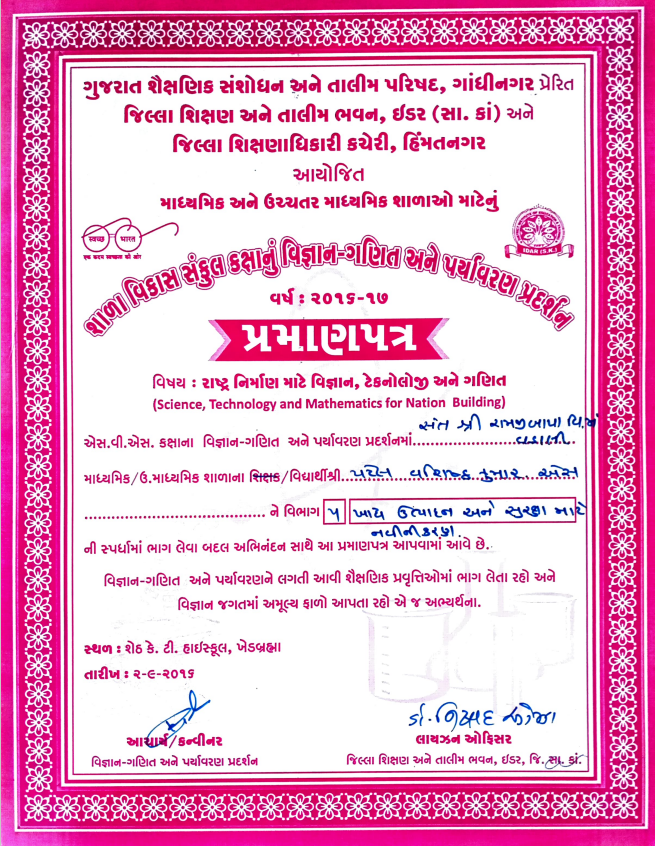 ગુજરાત શૈક્ષણિક સંશોધન અને તાલીમ પરિષદ, ગાંધીનગર પ્રેરિત
જિલ્લા શિક્ષણ અને તાલીમ ભવન, ઇડર (સા. કાં) અને
જિલ્લા શિક્ષણાધિકારી કચેરી, હિંમતનગર
આયોજિત
માધ્યમિક અને ઉચ્ચતર માધ્યમિક શાળાઓ માટેનું
स्वच्छ भारत
एक कदम स्वच्छता की ओर
IDAR (S.K.)
શાળા વિકાસ સંકુલ કક્ષાનું વિજ્ઞાન-ગણિત અને પર્યાવરણ પ્રદર્શન
વર્ષ : ૨૦૧૬-૧૭
પ્રમાણપત્ર
વિષય : રાષ્ટ્ર નિર્માણ માટે વિજ્ઞાન, ટેકનોલોજી અને ગણિત
(Science, Technology and Mathematics for Nation Building)
સંત શ્રી રામજીબાપા વિ.મં
એસ.વી.એસ. કક્ષાના વિજ્ઞાન-ગણિત અને પર્યાવરણ પ્રદર્શનમાં.......................વડાલી
માધ્યમિક/ઉ.માધ્યમિક શાળાના શિક્ષક/વિદ્યાર્થીશ્રી..પટેલ વશિષ્ઠ કુમાર એસ
................................. ને વિભાગ ૫ ખાદ્ય ઉત્પાદન અને સુરક્ષા માટે
નવીનીકરણ.
ની સ્પર્ધામાં ભાગ લેવા બદલ અભિનંદન સાથે આ પ્રમાણપત્ર આપવામાં આવે છે.
વિજ્ઞાન-ગણિત અને પર્યાવરણને લગતી આવી શૈક્ષણિક પ્રવૃત્તિઓમાં ભાગ લેતા રહો અને
વિજ્ઞાન જગતમાં અમૂલ્ય ફાળો આપતા રહો એ જ અભ્યર્થના.
સ્થળ : શેઠ કે. ટી. હાઈસ્કૂલ, ખેડબ્રહ્મા
તારીખ : ૨-૯-૨૦૧૬
ડૉ. નિષાદ ઓઝા
આચાર્ય/કન્વીનર
લાયઝન ઓફિસર
વિજ્ઞાન-ગણિત અને પર્યાવરણ પ્રદર્શન
જિલ્લા શિક્ષણ અને તાલીમ ભવન, ઇડર, જિ. સા. કાં.